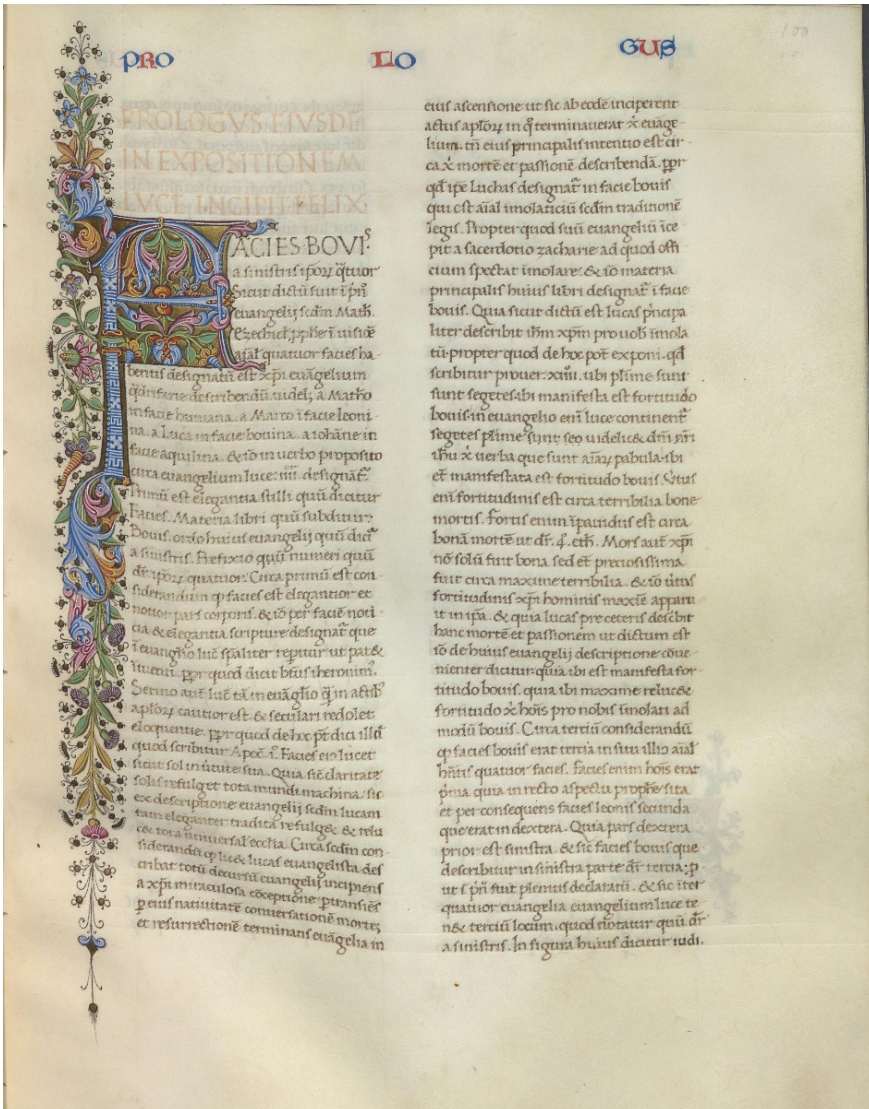 PRO LO GUS
PROLOGVS EIVSDE
IN EXPOSITIONEM
LVCE INCIPIT FELIX
FACIES BOVIS
a sinistris ipoꝝ q̃tuor
Sicut dictũ fuit ĩ pñ
evangelij scdm Math.
Ezechiel, ꝓphe ĩ visiõe
aĩal quatuor facies ha-
bentis designatũ est xp̃i evãgelium
q̃drifarie describendũ videl; a Matho
in facie humana. a Marco ĩ facie leoni-
na. a Luca in facie bovina. a iohãne in
facie aquilina. & iõ in verbo proposito
circa evangelium luce. iiii. designãt.
Primũ est elegantia stilli quũ dicitur
Facies. Materia libri quũ subditur
Bovis. ordo huius evangelij quũ dicit
a sinistris. Prefixio quũ numeri quũ
dr̃ ipoꝝ quatuor. Circa primũ est con-
siderandum ꝙ facies est elegantior et
notior pars corporis. & iõ per faciẽ noti-
cia & elegantia scripture designat̃ que
ĩ evangl̃io lucẽ sp̃aliter reperitur ut patz &
ĩtuenti. ꝓpr quod dicit b̃tus iheronim.
Sermo aut̃ lucẽ tã in evãgl̃io q̃ in actib
apl̃oꝝ cautior est. & seculari redolet
eloquentie. ꝓpr quod de hoc pt̃ dici illd̃
quod scribitur Apoc. i. Facies ei lucet
sicut sol in ṽtute sua. Quia sic claritate
solis refulget tota mundi machina. sic
ex descriptione evangelij scdm lucam
tam eleganter tradita refulget & relu
cet tota universal ecclia. Circa scdm con
siderandũ ꝙ lic& lucas evangelista des
cribat totũ decursũ evangelij incipiens
a xp̃i miraculosa cõceptione ꝑtransiẽs
ꝑ eius nativitatẽ conversationẽ mortez
et resurrectionẽ terminans evãgelia in
eius ascensione ut sic ab eodẽ inciperent
actus apl̃oꝝ in q̃ terminaverat x̃ evãge-
lium. tñ eius principalis intentio est cir-
ca x̃ mortẽ et passionẽ describendã. ꝓpr
qd̃ ip̃e Luchas designat̃ in facie bovis
qui est aĩal ĩmolaticiũ scdm traditionẽ
legis. Propter quod suũ evangeliũ ĩce
pit a sacerdotio zacharie ad quod offi
cium spectat ĩmolare. & iõ materia
principalis huius libri designat̃ ĩ facie
bovis. Quia sicut dictũ est lucas p̃ncipa
liter describit ihm xpm pro nob̃ ĩmola
tũ. propter quod de hoc pot̃ exponi. qd̃
scribitur prover. xiiii. ubi pl̃ime sunt
sunt segetes. ibi manifesta est fortitudo
bovis. in evangelio eni luce continent̃
segetes pl̃ime sunt seo videlic& dñi nr̃i
ihu x̃ verba que sunt aĩaꝝ pabula. ibi
et manifestata est fortitudo bovis. Ṽtus
em̃ fortitudinis est circa terribilia bone
mortis. Fortis enim ĩpavidus est circa
bonã mortẽ ut dr̃. 4. eth. Mors aut̃ xp̃i
nõ solũ fuit bona sed et preciosissima
fuit circa maxime terribilia. & iõ ṽtus
fortitudinis xp̃i hominis maxie apparu
it in ip̃a. & quia lucas pre ceteris descbit
hanc mortẽ et passionem ut dictum est
iõ de huius evangelij descriptione cõve-
nienter dicitur quia ibi est manifesta for
titudo bovis. quia ibi maxime reluc&
fortitudo x̃ hoĩs pro nobis ĩmolati ad
modũ bovis. Circa terciũ considerandũ
ꝙ facies bovis erat tercia in situ illiꝰ aĩal
hñtis quatuor facies. Facies enim hoĩs erat
p̃ma quia in recto aspectu prophẽ sita
et per consequens facies leonis secunda
que erat in dextera. Quia pars dextera
prior est sinistra. & sic facies bovis que
describitur in sinistra parte dr̃ tercia; p
ut ĩ pñ fuit plenius declaratũ. & sic ĩter
quatuor evangelia evangelium luce te
n& terciũ locum. quod notatur quũ dr̃
a sinistris. In figura huius dicitur iudi.